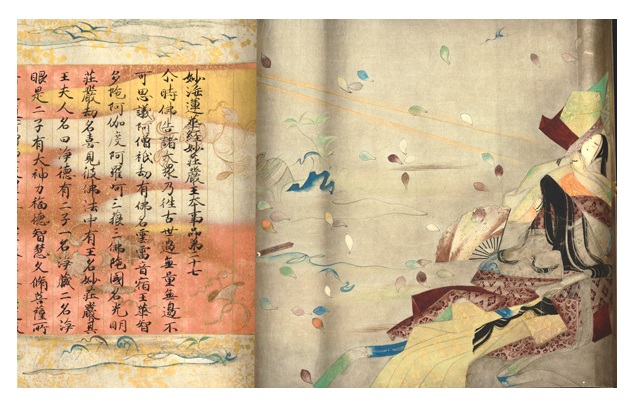 妙法蓮華經妙莊嚴王本事品第二十七
尒時佛告諸大衆乃往古世過無量無邊不
可思議阿僧祇劫有佛名雲雷音宿王華智
多陁阿伽度阿羅呵三藐三佛陁國名光明
莊嚴劫名喜見彼佛法中有王名妙莊嚴其
王夫人名曰淨德有二子一名淨藏二名淨
眼是二子有大神力福德智慧久脩菩薩所